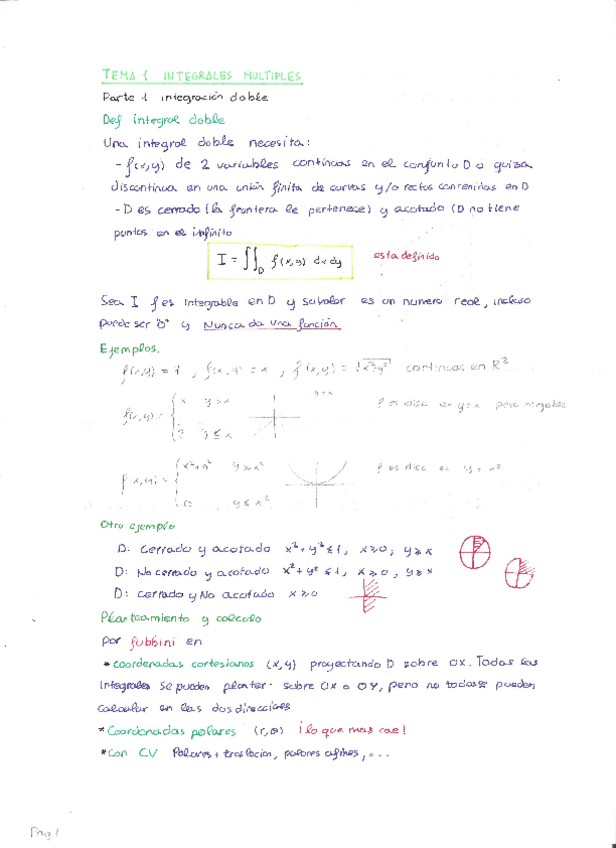 TEMA 1 INTEGRALES MULTIPLES
Parte 1 integración doble
Def integral doble
Una integral doble necesita:
- f(x,y) de 2 variables continuas en el conjunto D o quiza
discontinua en una unión finita de curvas y/o rectas contenidas en D
- D es cerrado (la frontera le pertenece) y acotado (D no tiene
puntos en el infinito
I = ∬_D f(x,y) dx dy esta definido
Sea I f es integrable en D y su valor es un numero real, incluso
puede ser "0" y Nunca da una función
Ejemplos.
f(x,y) = 1 , f(x,y) = x , f(x,y) = √x²+y² continuas en R²
y=x
f(x,y) = { x y>x f es disc en y=x pero integrable
2 y≤x
f(x,y) = { x²+y² y≥x² f es disc en y=x²
0 y≤x²
Otro ejemplo
D: Cerrado y acotado x²+y²≤1, x≥0, y≥x
D: No cerrado y acotado x²+y²≤1, x≥0, y≥x
D: cerrado y No acotado x≥0
Planteamiento y calculo
por fubbini en
* coordenadas cartesianas (x,y) proyectando D sobre OX. Todas las
integrales se pueden plantear sobre OX o OY, pero no todas se pueden
calcular en las dos direcciones
* Coordenadas polares (r,θ) ¡lo que mas cae!
* Con CV Polares + traslacion, polares afines, ...
Pag 1